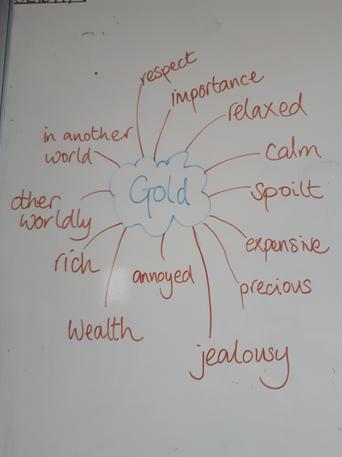 respect
importance
relaxed
in another
world
calm
Gold
spoilt
other
worldly
expensive
rich
annoyed
precious
Wealth
jealousy